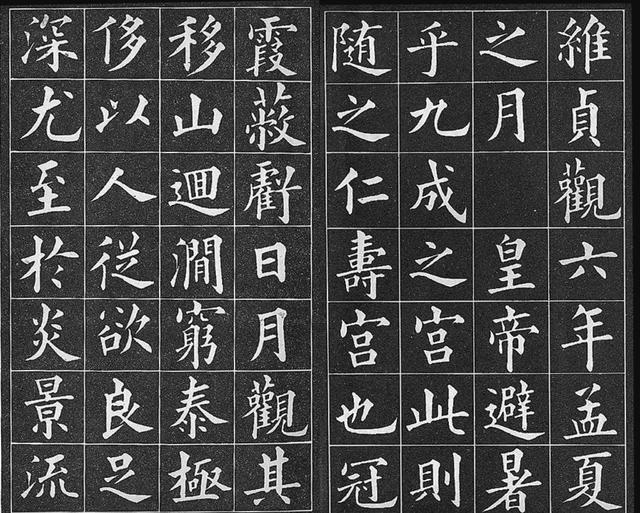 維貞觀六年孟夏
之月 皇帝避暑
乎九成之宮此則
随之仁壽宮也冠
霞蔽虧日月觀其
移山迴澗窮泰極
侈以人從欲良足
深尤至於炎景流